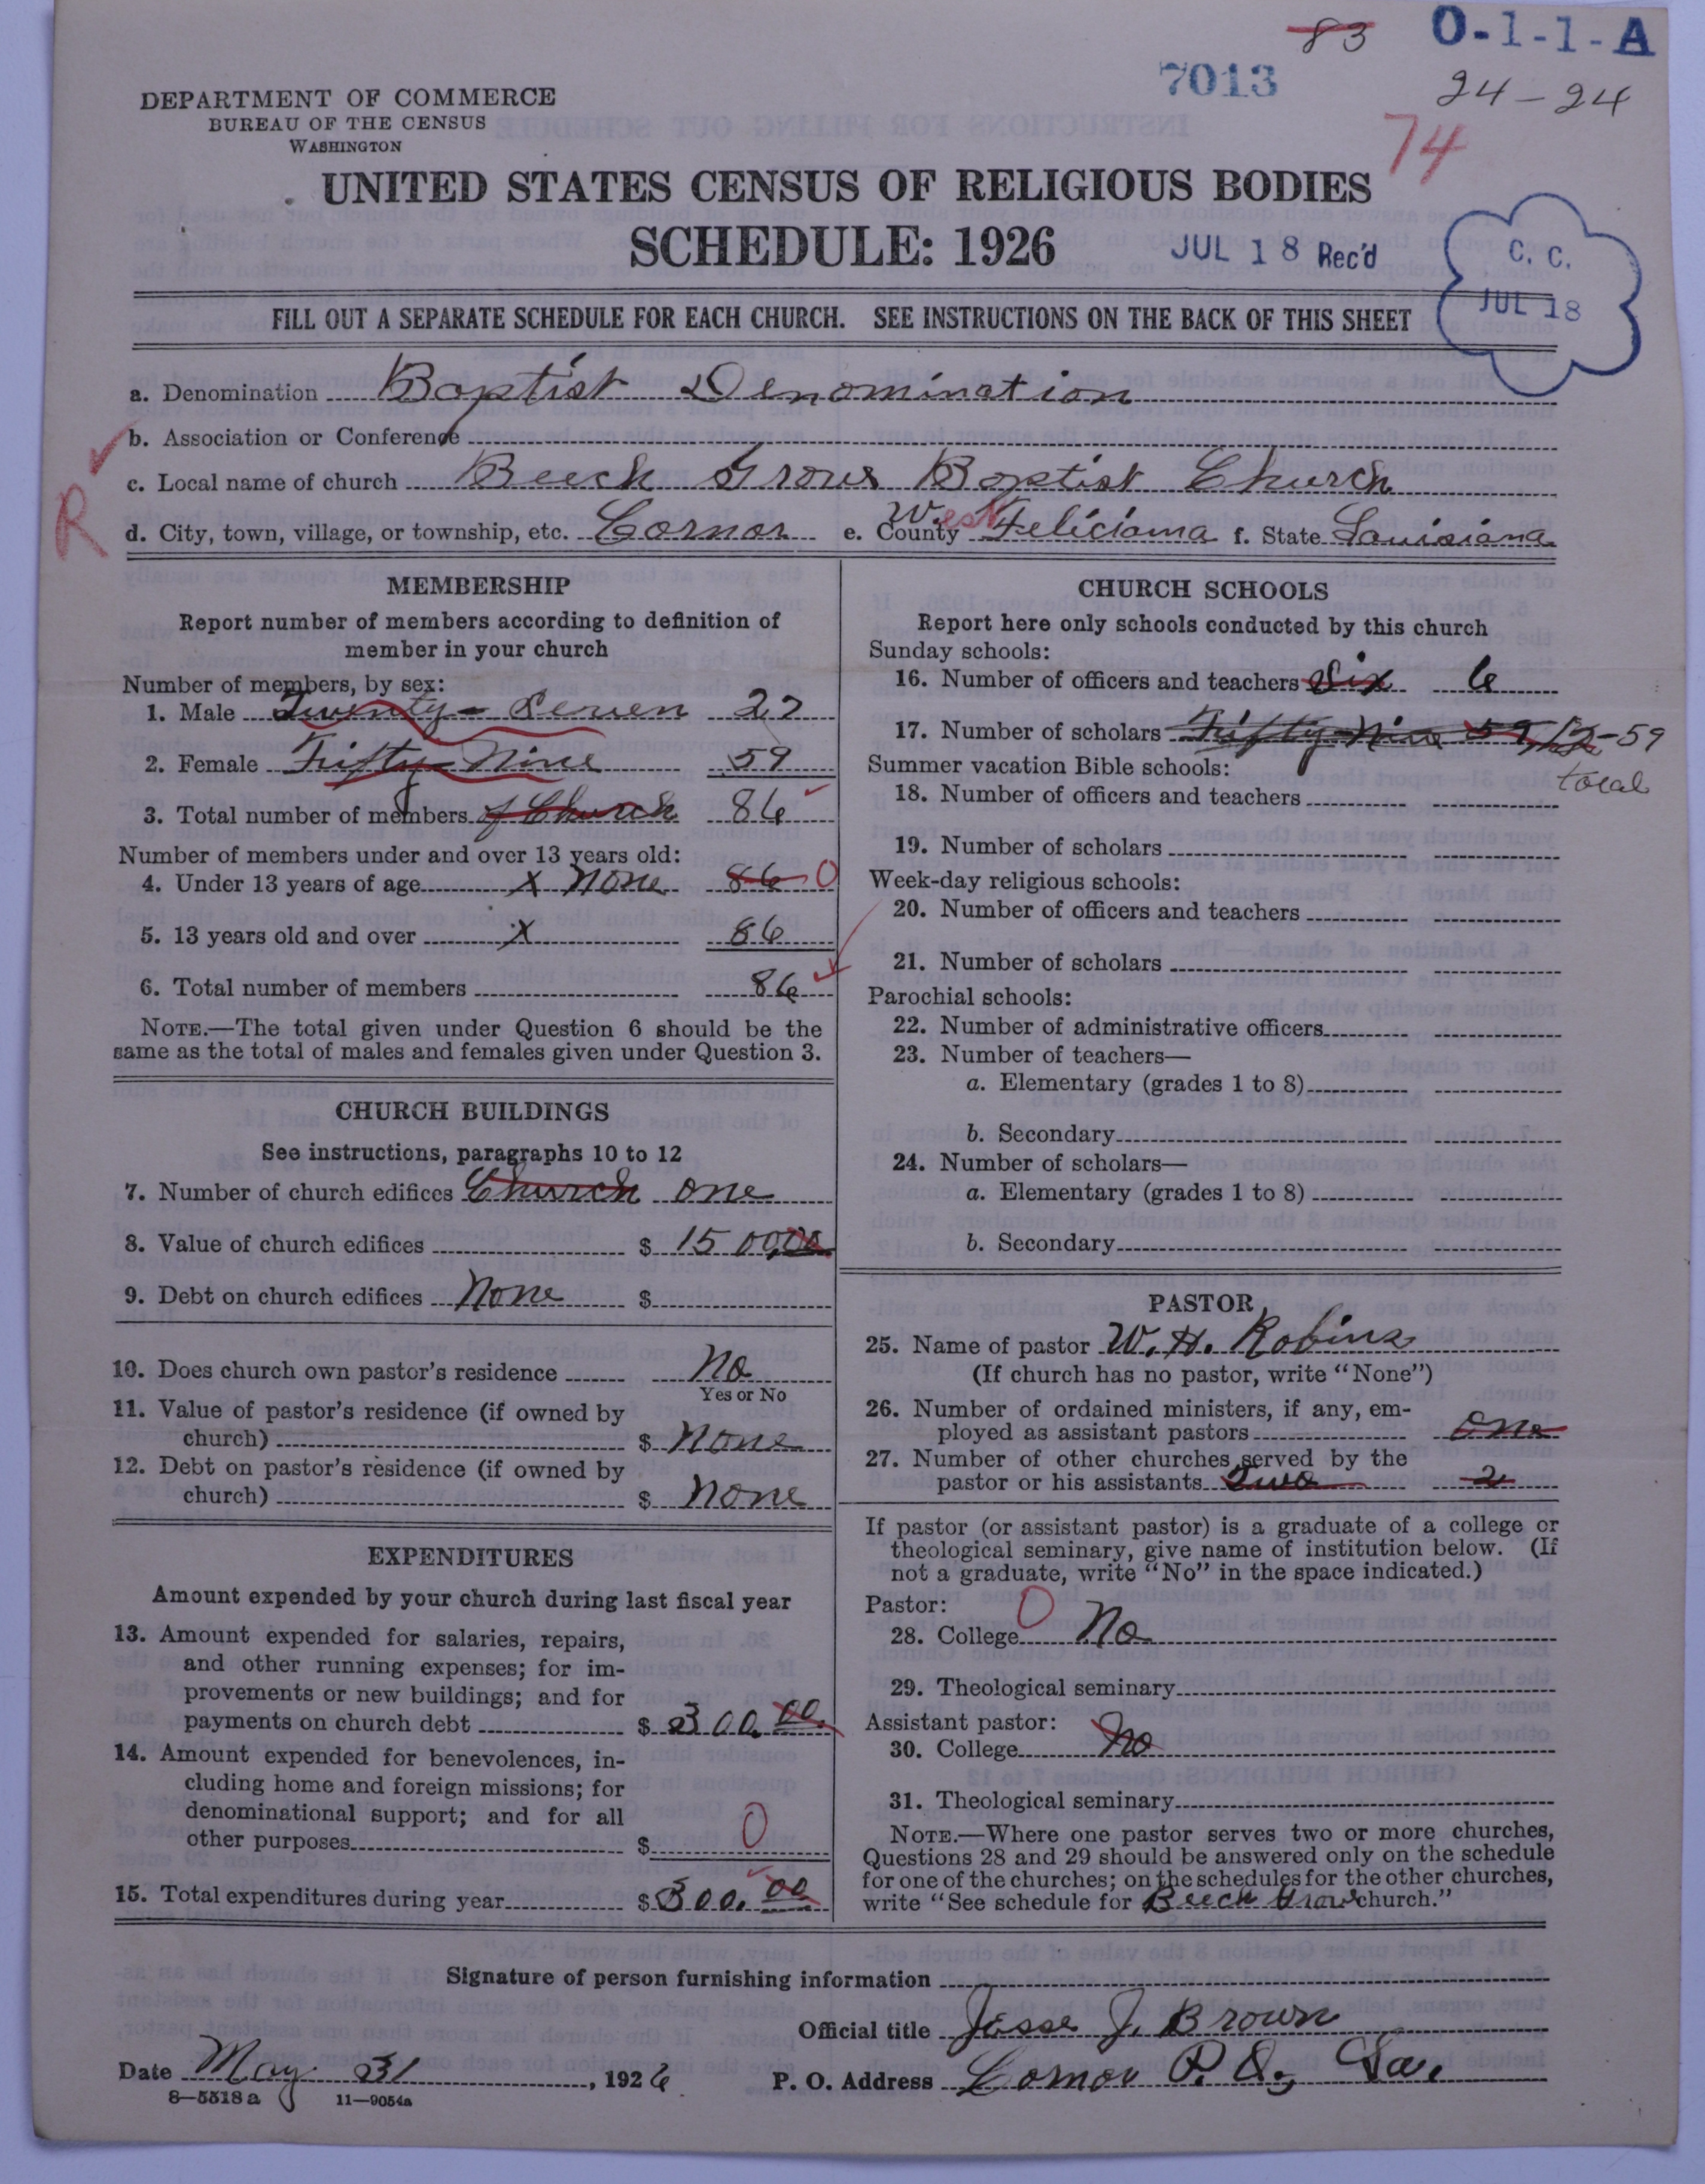 83 O-1-1-A
7013 24-24
DEPARTMENT OF COMMERCE
BUREAU OF THE CENSUS
WASHINGTON
74
UNITED STATES CENSUS OF RELIGIOUS BODIES
SCHEDULE: 1926
JUL 18 Rec'd
C. C.
JUL 18
FILL OUT A SEPARATE SCHEDULE FOR EACH CHURCH. SEE INSTRUCTIONS ON THE BACK OF THIS SHEET
a. Denomination Baptist Denomination
b. Association or Conference
c. Local name of church Beech Grove Baptist Church
R
d. City, town, village, or township, etc. Cornor e. County W. est Feliciana f. State Louisiana
MEMBERSHIP
Report number of members according to definition of
member in your church
Number of members, by sex:
1. Male Twenty-Seven 27
2. Female Fifty-Nine 59
3. Total number of members of Church 86
Number of members under and over 13 years old:
4. Under 13 years of age x None 86 0
5. 13 years old and over x 86
6. Total number of members 86
NOTE.—The total given under Question 6 should be the
same as the total of males and females given under Question 3.
CHURCH BUILDINGS
See instructions, paragraphs 10 to 12
7. Number of church edifices Church one
8. Value of church edifices $ 1500.00
9. Debt on church edifices None $
10. Does church own pastor's residence No
Yes or No
11. Value of pastor's residence (if owned by
church) $ None
12. Debt on pastor's residence (if owned by
church) $ None
EXPENDITURES
Amount expended by your church during last fiscal year
13. Amount expended for salaries, repairs,
and other running expenses; for im-
provements or new buildings; and for
payments on church debt $ 300.00
14. Amount expended for benevolences, in-
cluding home and foreign missions; for
denominational support; and for all
other purposes $ 0
15. Total expenditures during year $ 300.00
CHURCH SCHOOLS
Report here only schools conducted by this church
Sunday schools:
16. Number of officers and teachers Six 6
17. Number of scholars Fifty-Nine 59 -59
total
Summer vacation Bible schools:
18. Number of officers and teachers
19. Number of scholars
Week-day religious schools:
20. Number of officers and teachers
21. Number of scholars
Parochial schools:
22. Number of administrative officers
23. Number of teachers—
a. Elementary (grades 1 to 8)
b. Secondary
24. Number of scholars—
a. Elementary (grades 1 to 8)
b. Secondary
PASTOR
25. Name of pastor W. H. Robins
(If church has no pastor, write "None")
26. Number of ordained ministers, if any, em-
ployed as assistant pastors one
27. Number of other churches served by the
pastor or his assistants Two 2
If pastor (or assistant pastor) is a graduate of a college or
theological seminary, give name of institution below. (If
not a graduate, write "No" in the space indicated.)
Pastor: 0
28. College No
29. Theological seminary
Assistant pastor:
30. College No
31. Theological seminary
NOTE.—Where one pastor serves two or more churches,
Questions 28 and 29 should be answered only on the schedule
for one of the churches; on the schedules for the other churches,
write "See schedule for Beech Grove church."
Signature of person furnishing information
Official title Jesse J. Brown
Date May 31, 1926 P. O. Address Cornor P.O., La.
8-5518a 11-9054a